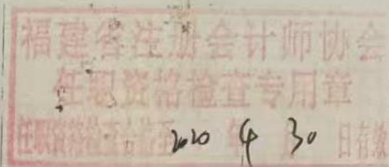 福建省注册会计师协会
任职资格检查专用章
任职资格检查合格至 2020 年 4 月 30 日有效